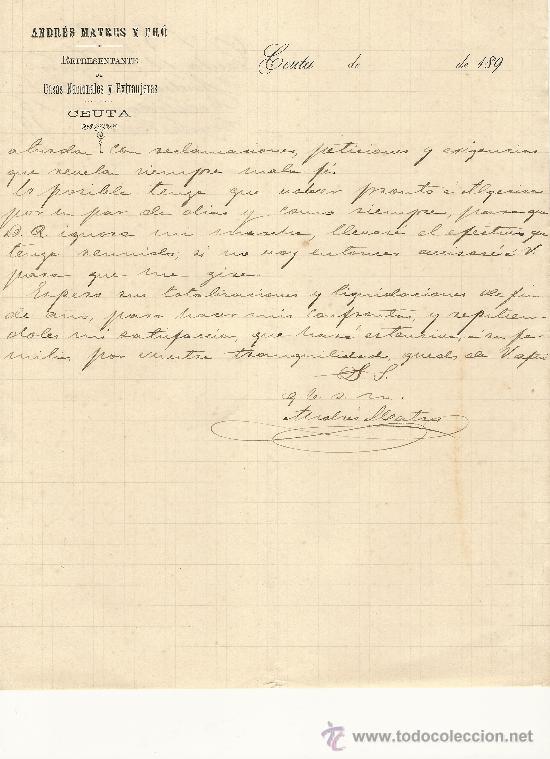 ANDRÉS MATEUS Y CHÉ
REPRESENTANTE
DE
Casas Nacionales y Extranjeras
CEUTA
Ceuta de de 189
con reclamaciones, peticiones y exigencias
que revela siempre mala fé.
Es posible tenga que volver pronto á Algeciras
por un par de dias y como siempre, para que
D. R. ignora mi marcha, llevaré el efectivo que
tenga reunido; si no voy entonces avisaré á V.
para que me gire.
Espero sus totalizaciones y liquidaciones de fin
de año, para hacer mis confrontas, y repitien-
doles mi satisfacion, que hará estensiva, á su fa-
milia por vuestra tranquilidad, quedo de V afmo
S. S.
q b s m.
Andrés Mateus
todocoleccion
www.todocoleccion.net